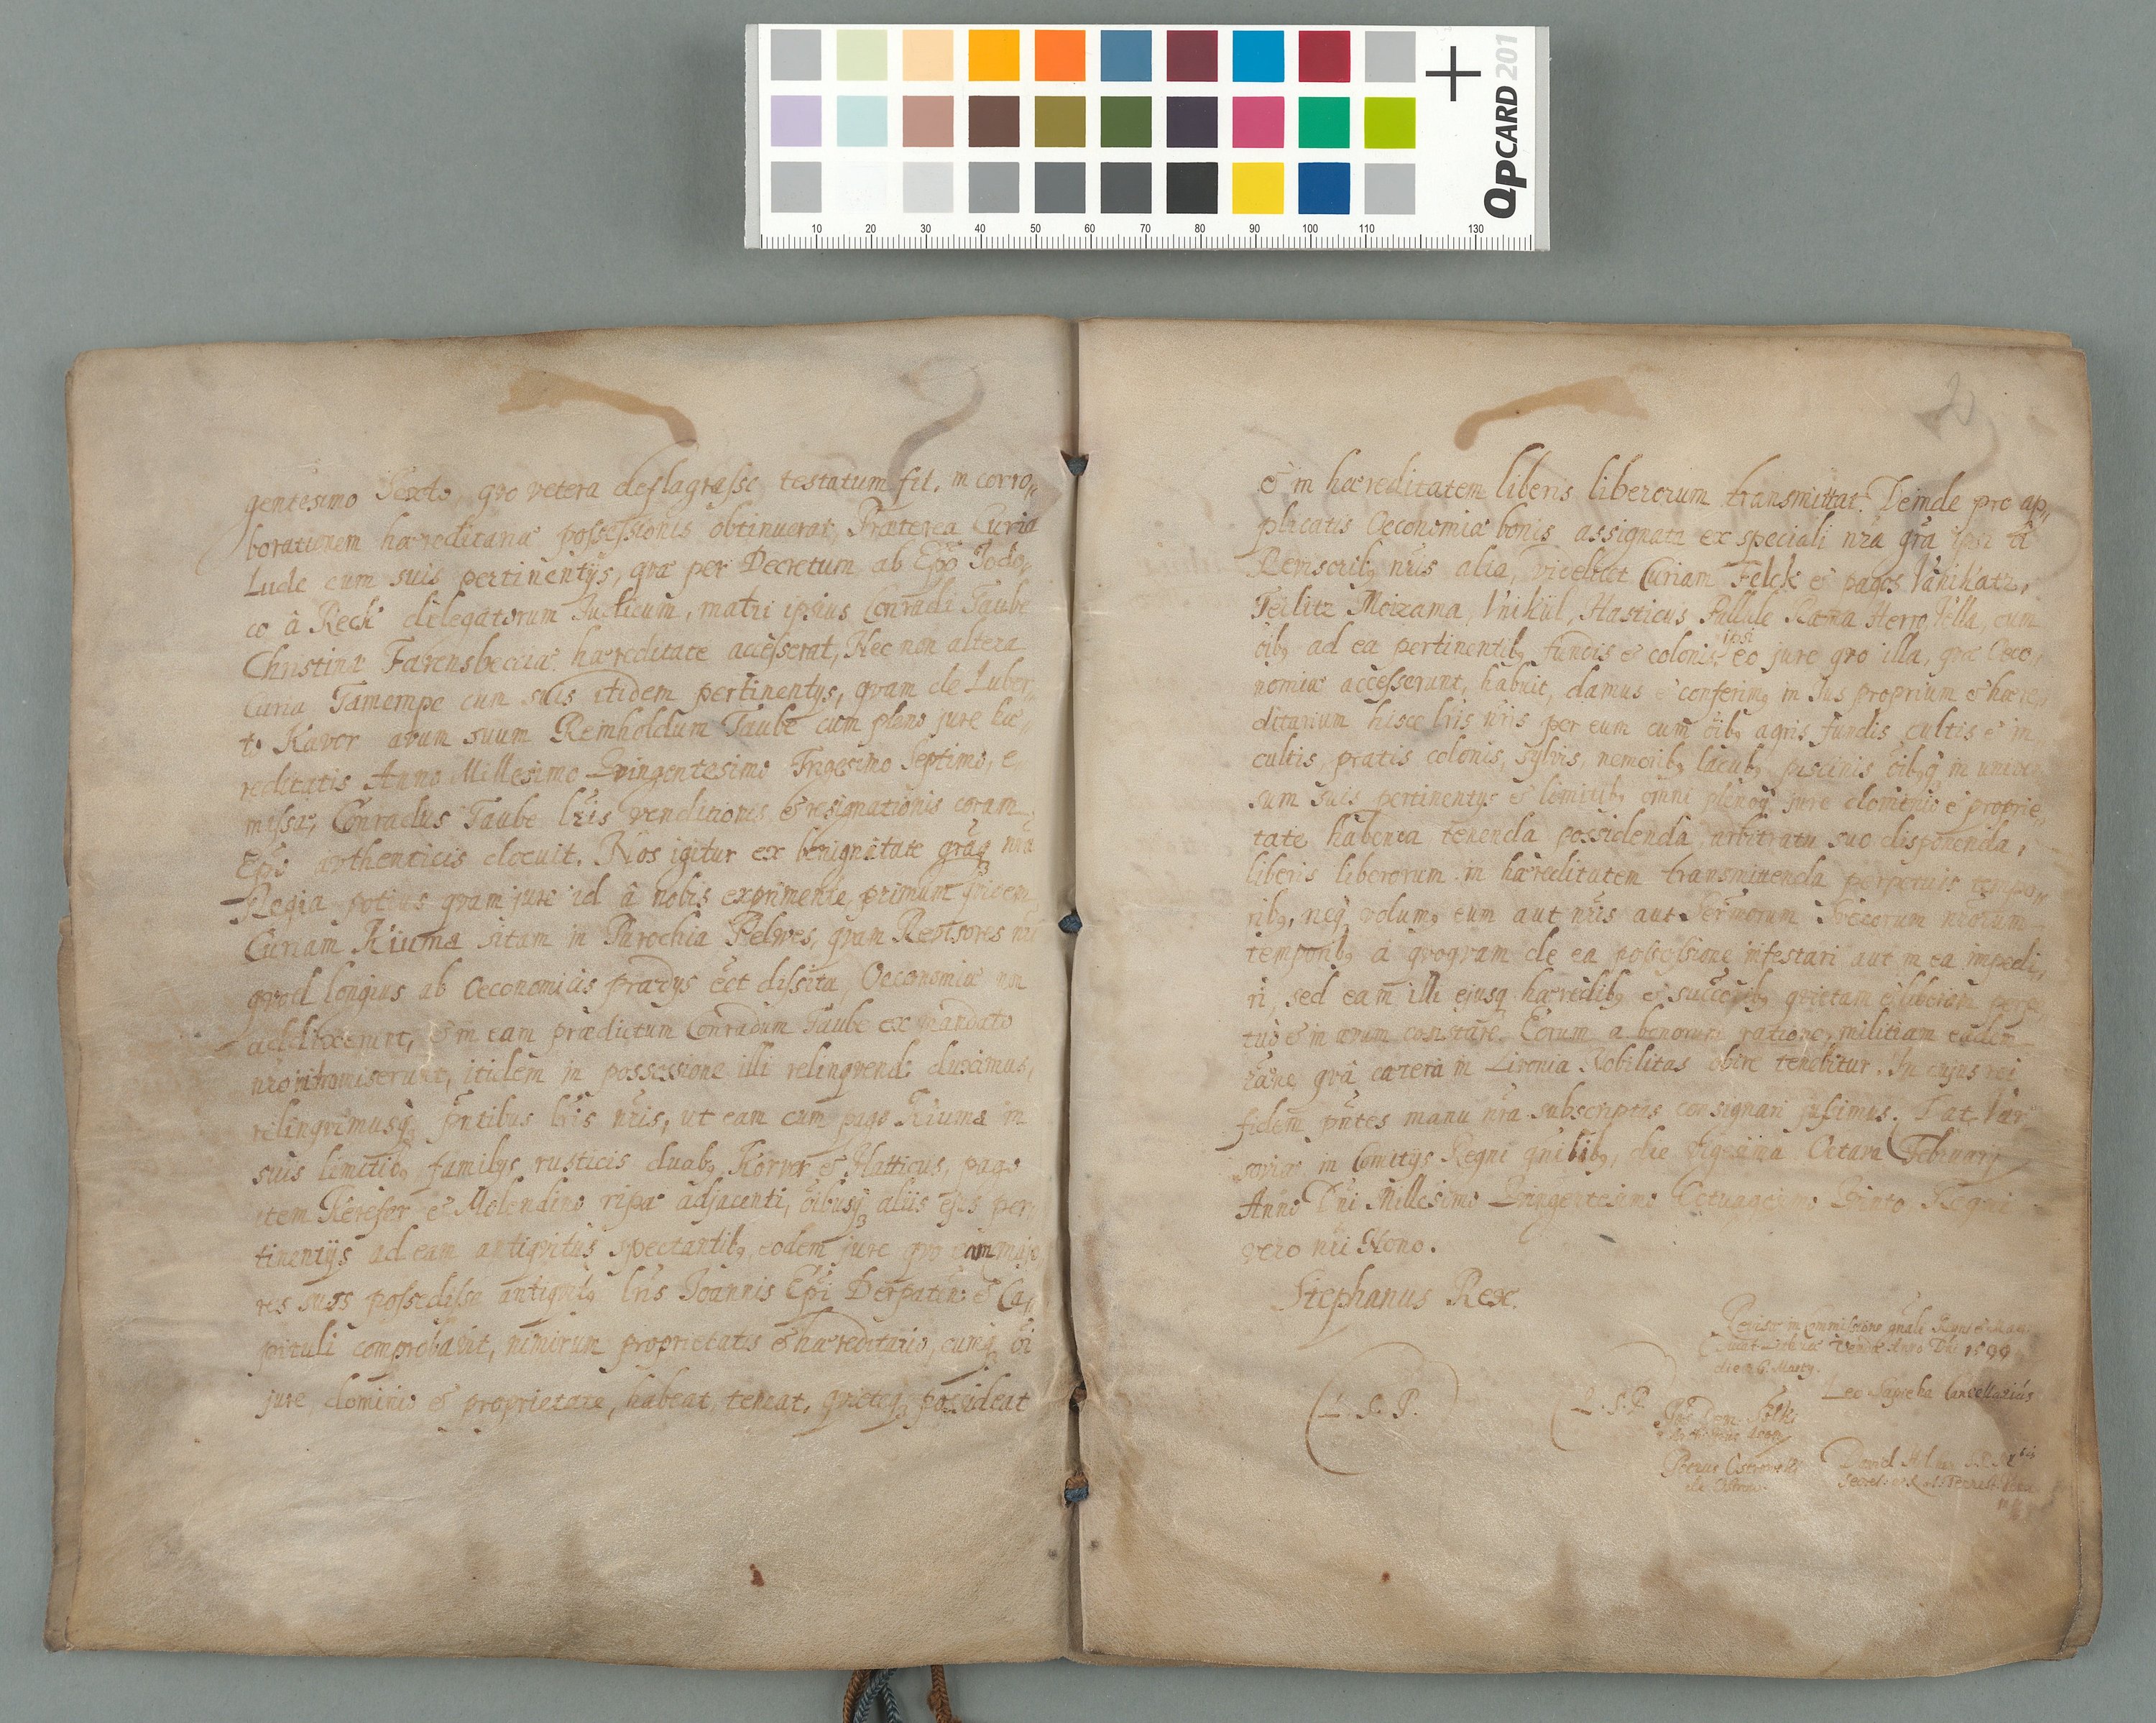 QPCARD 201
10 20 30 40 50 60 70 80 90 100 110 130
gentesimo Sexto, qvo vetera deflagrasse testatum fit, in corro„
borationem hæreditariæ possessionis obtinuerat, Præterea Curia
Lude cum suis pertinentijs, qvæ per Decretum ab Epō Jodo„
co â Reck delegatorum Judicum, matri ipsius Conradi Taube
Christinæ Farensbecciæ hæreditate accesserat, Nec non altera
Curia Tamempe cum suis itidem pertinentijs, qvam de Luber„
to Kaver avum suum Reinholdum Taube cum pleno jure hæ„
reditatis Anno Millesimo Qvingentesimo Trigesimo Septimo, e„
missa, Conradus Taube lris venditionis & resignationis coram
Epō avthenticis docuit. Nos igitur ex benignitate graq nra
Regia potius qvam jure id â nobis exprimente, primum qvidem
Curiam Kiuma sitam in Parochia Pelwes, qvam Revisores nri
qvod longius ab Oeconomicis prædijs èct dissita, Oeconomiæ non
addixerunt, & in eam prædictum Conradum Taube ex mandato
nro intromiserunt, itidem in possessione illi relinqvend: duximus,
relinqvimusq pn̄tibus lris nris, ut eam cum pago Kiuma in
suis limitib9 familijs rusticis duab9 Korver & Hatticus, pago
item Kerefer & Molendino ripæ adjacenti, oibusq aliis ejus per
tinentijs ad eam antiqvitus spectantib9, eodem jure qvo eam majo
res suos possedisse antiqvit9 lris Joannis Epi Derpaten: & Ca„
pituli comprobavit, nimirum proprietatis & hæreditario, cumq oi
jure dominio & proprietate, habeat, teneat, qvieteq possideat
& in hæreditatem liberis liberorum transmittat. Deinde pro ap„
plicatis Oeconomiæ bonis assignata ex speciali nra gra ipsi â
Revisorib9 nris alia, videlicet Curiam Felck & pagos Vanihatz,
Teilitz Moizama, Vnikül, Hasticus Pallile Rama Herro, Villa, cum
oib9 ad ea pertinentib9 fundis & colonis, ipsi eo jure qvo illa, qvæ Oeco„
nomiæ accesserunt, habuit, damus & conferim9 in Jus proprium & hære„
ditarium hisce lris nris per eum cum oib9 agris fundis cultis & in
cultis, pratis colonis, sylvis, nemorib9 lacub9 piscinis oib9q in univer
sum suis pertinentijs & limitib9 omni plenoq jure dominio & proprie„
tate habenda tenenda possidenda, arbitratu suo disponenda,
liberis liberorum in hæreditatem transmittenda perpetuis tempo„
rib9, neq volum9 eum aut nris aut Sermorum Svccorum nrorum
temporib9 â qvoqvam de ea possessione infestari aut in ea impedi„
ri, sed eam illi ejusq hæredib9 & succorib9 qvietam & liberam perpe
tuo & in ævum constare. Eorum a bonorum ratione, militiam eadem
râne qvâ cætera in Livonia Nobilitas obire tenebitur. In cujus rei
fidem pn̄tes manu nra subscriptas consignari jussimus. Dat: Var
soviæ in Comitijs Regni gn̄lib9, die vigesima Octava Februarij
Anno Dni Millesimo Qvingentesimo Octuagesimo Qvinto Regni
vero nri Nono.
Stephanus Rex.
Revisæ in Commissione gn̄ali
Anno Dni 1599
die 6 Marty.
Leo Sapieha Cancellarius
(L. S. P.
(L. S. P.
David Hilchen